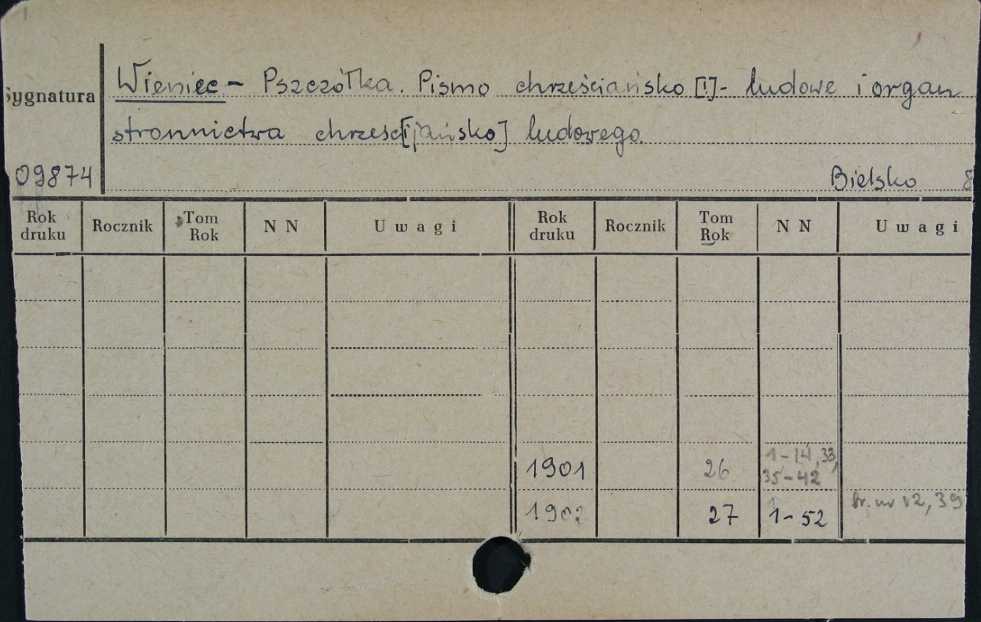 Sygnatura
Wieniec - Pszczółka. Pismo chrześciańsko [!]- ludowe i organ
stronnictwa chrześc[ijańsko] ludowego.
09874
Bielsko 8
Rok druku Rocznik Tom Rok NN Uwagi Rok druku Rocznik Tom Rok NN Uwagi
1901 26 1-14, 33, 35-42
1902 27 1-52 Br. nr 12, 39